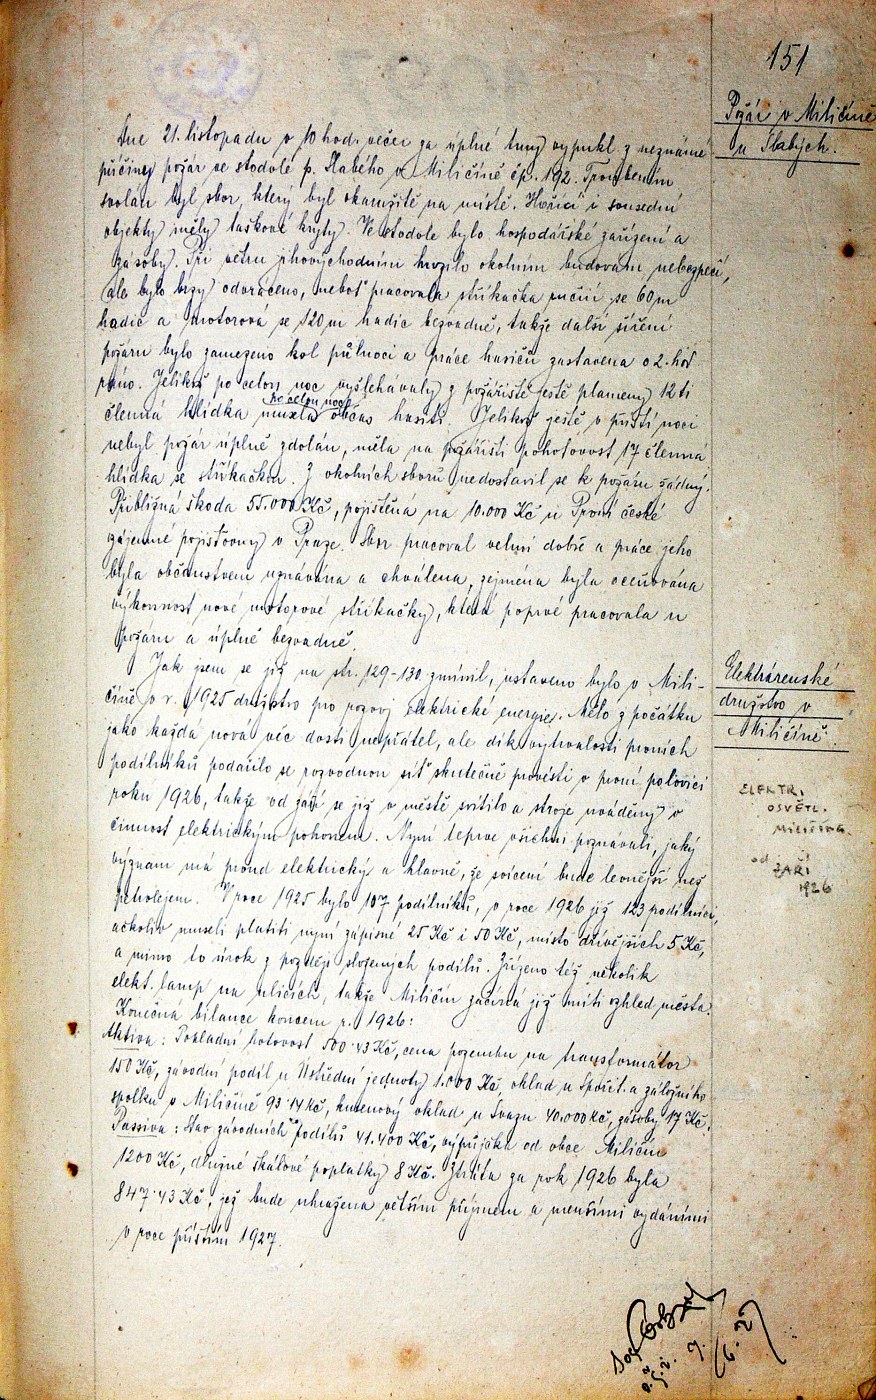 151
Požár v Miličíně
u Slabých.
Dne 21. listopadu v 10 hod. večer za úplné tmy vypukl z neznámé
příčiny požár ve stodole p. Slabého v Miličíně čp. 192. Troubením
svolán byl sbor, který byl okamžitě na místě. Hořící i sousední
objekty měly taškové kryty. Ve stodole bylo hospodářské zařízení a
zásoby. Při větru jihovýchodním hrozilo okolním budovám nebezpečí,
ale bylo brzy odvráceno, neboť pracovala stříkačka ruční se 60 m
hadic a motorová se 120 m hadic bezvadně, takže další šíření
požáru bylo zamezeno kol půlnoci a práce hasičů zastavena o 2. hod
ráno. Jelikož po celou noc vyšlehávaly z požářiště ještě plameny 12 ti
po celou noc
členná hlídka musela občas hasiti. Jelikož ještě v příští noci
nebyl požár úplně zdolán, měla na požářišti pohotovost 17 členná
hlídka se stříkačkou. Z okolních sborů nedostavil se k požáru žádný.
Přibližná škoda 55.000 Kč, pojištěná na 10.000 Kč u První české
vzájemné pojišťovny v Praze. Sbor pracoval velmi dobře a práce jeho
byla občanstvem uznávána a chválena, zejména byla oceňována
výkonnost nové motorové stříkačky, která poprvé pracovala u
požáru a úplně bezvadně.
Elektrárenské
družstvo v
Miličíně.
Jak jsem se již na str. 129-130 zmínil, ustaveno bylo v Mili-
číně v r. 1925 družstvo pro rozvoj elektrické energie. Mělo z počátku
jako každá nová věc dosti nepřátel, ale dík vytrvalosti prvních
podílníků podařilo se rozvodnou síť skutečně provésti v první polovici
roku 1926, takže od září se již v městě svítilo a stroje uváděny v
činnost elektrickým pohonem. Nyní teprve všichni poznávali, jaký
význam má proud elektrický a hlavně, že svícení bude levnější než
petrolejem. V roce 1925 bylo 107 podílníků, v roce 1926 již 123 podílníci,
ačkoliv museli platiti nyní zápisné 25 Kč i 50 Kč, místo dřívějších 5 Kč,
a mimo to úrok z později složených podílů. Zřízeno též několik
elekt. lamp na ulicích, takže Miličín začíná již míti vzhled města.
ELEKTR.
OSVĚTL.
MILIČÍNA
od
ZÁŘÍ
1926
Konečná bilance koncem r. 1926:
Aktiva: Pokladní hotovost 500·43 Kč, cena pozemku na transformátor
150 Kč, závodní podíl u Ústřední jednoty 1.000 Kč, vklad u Spořit. a záložního
spolku v Miličíně 93·14 Kč, kmenový vklad u Svazu 40.000 Kč, zásoby 17 Kč.
Passiva: Stav závodních podílů 41.400 Kč, výpůjčka od obce Miličín
1200 Kč, dlužné škálové poplatky 8 Kč. Ztráta za rok 1926 byla
847·43 Kč, jež bude uhražena větším příjmem a menšími vydáními
v roce příštím 1927.